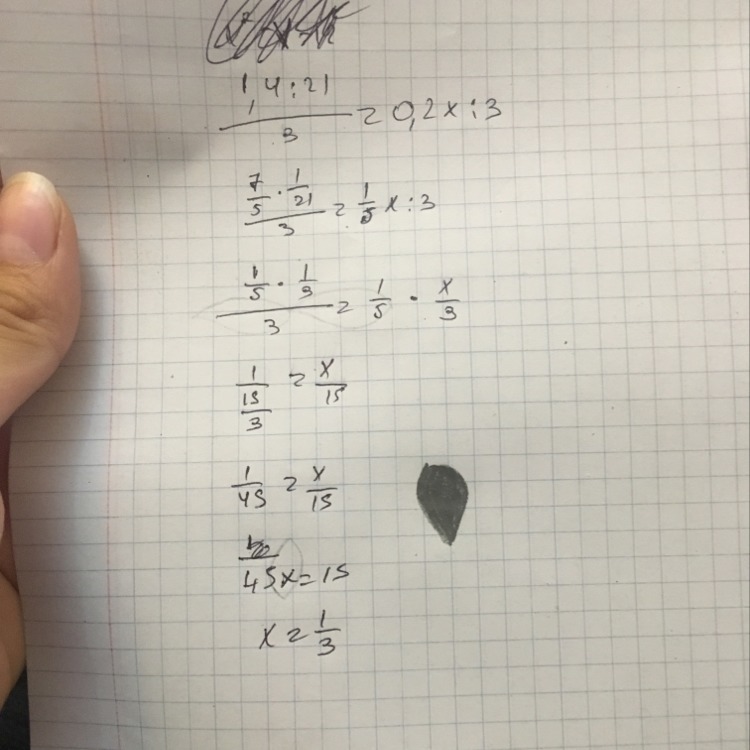 1,4:21/3 = 0,2x:3
7/5 · 1/21/3 = 1/5 x:3
1/5 · 1/3/3 = 1/5 · x/3
1/15/3 = x/15
1/45 = x/15
45x=15
x = 1/3